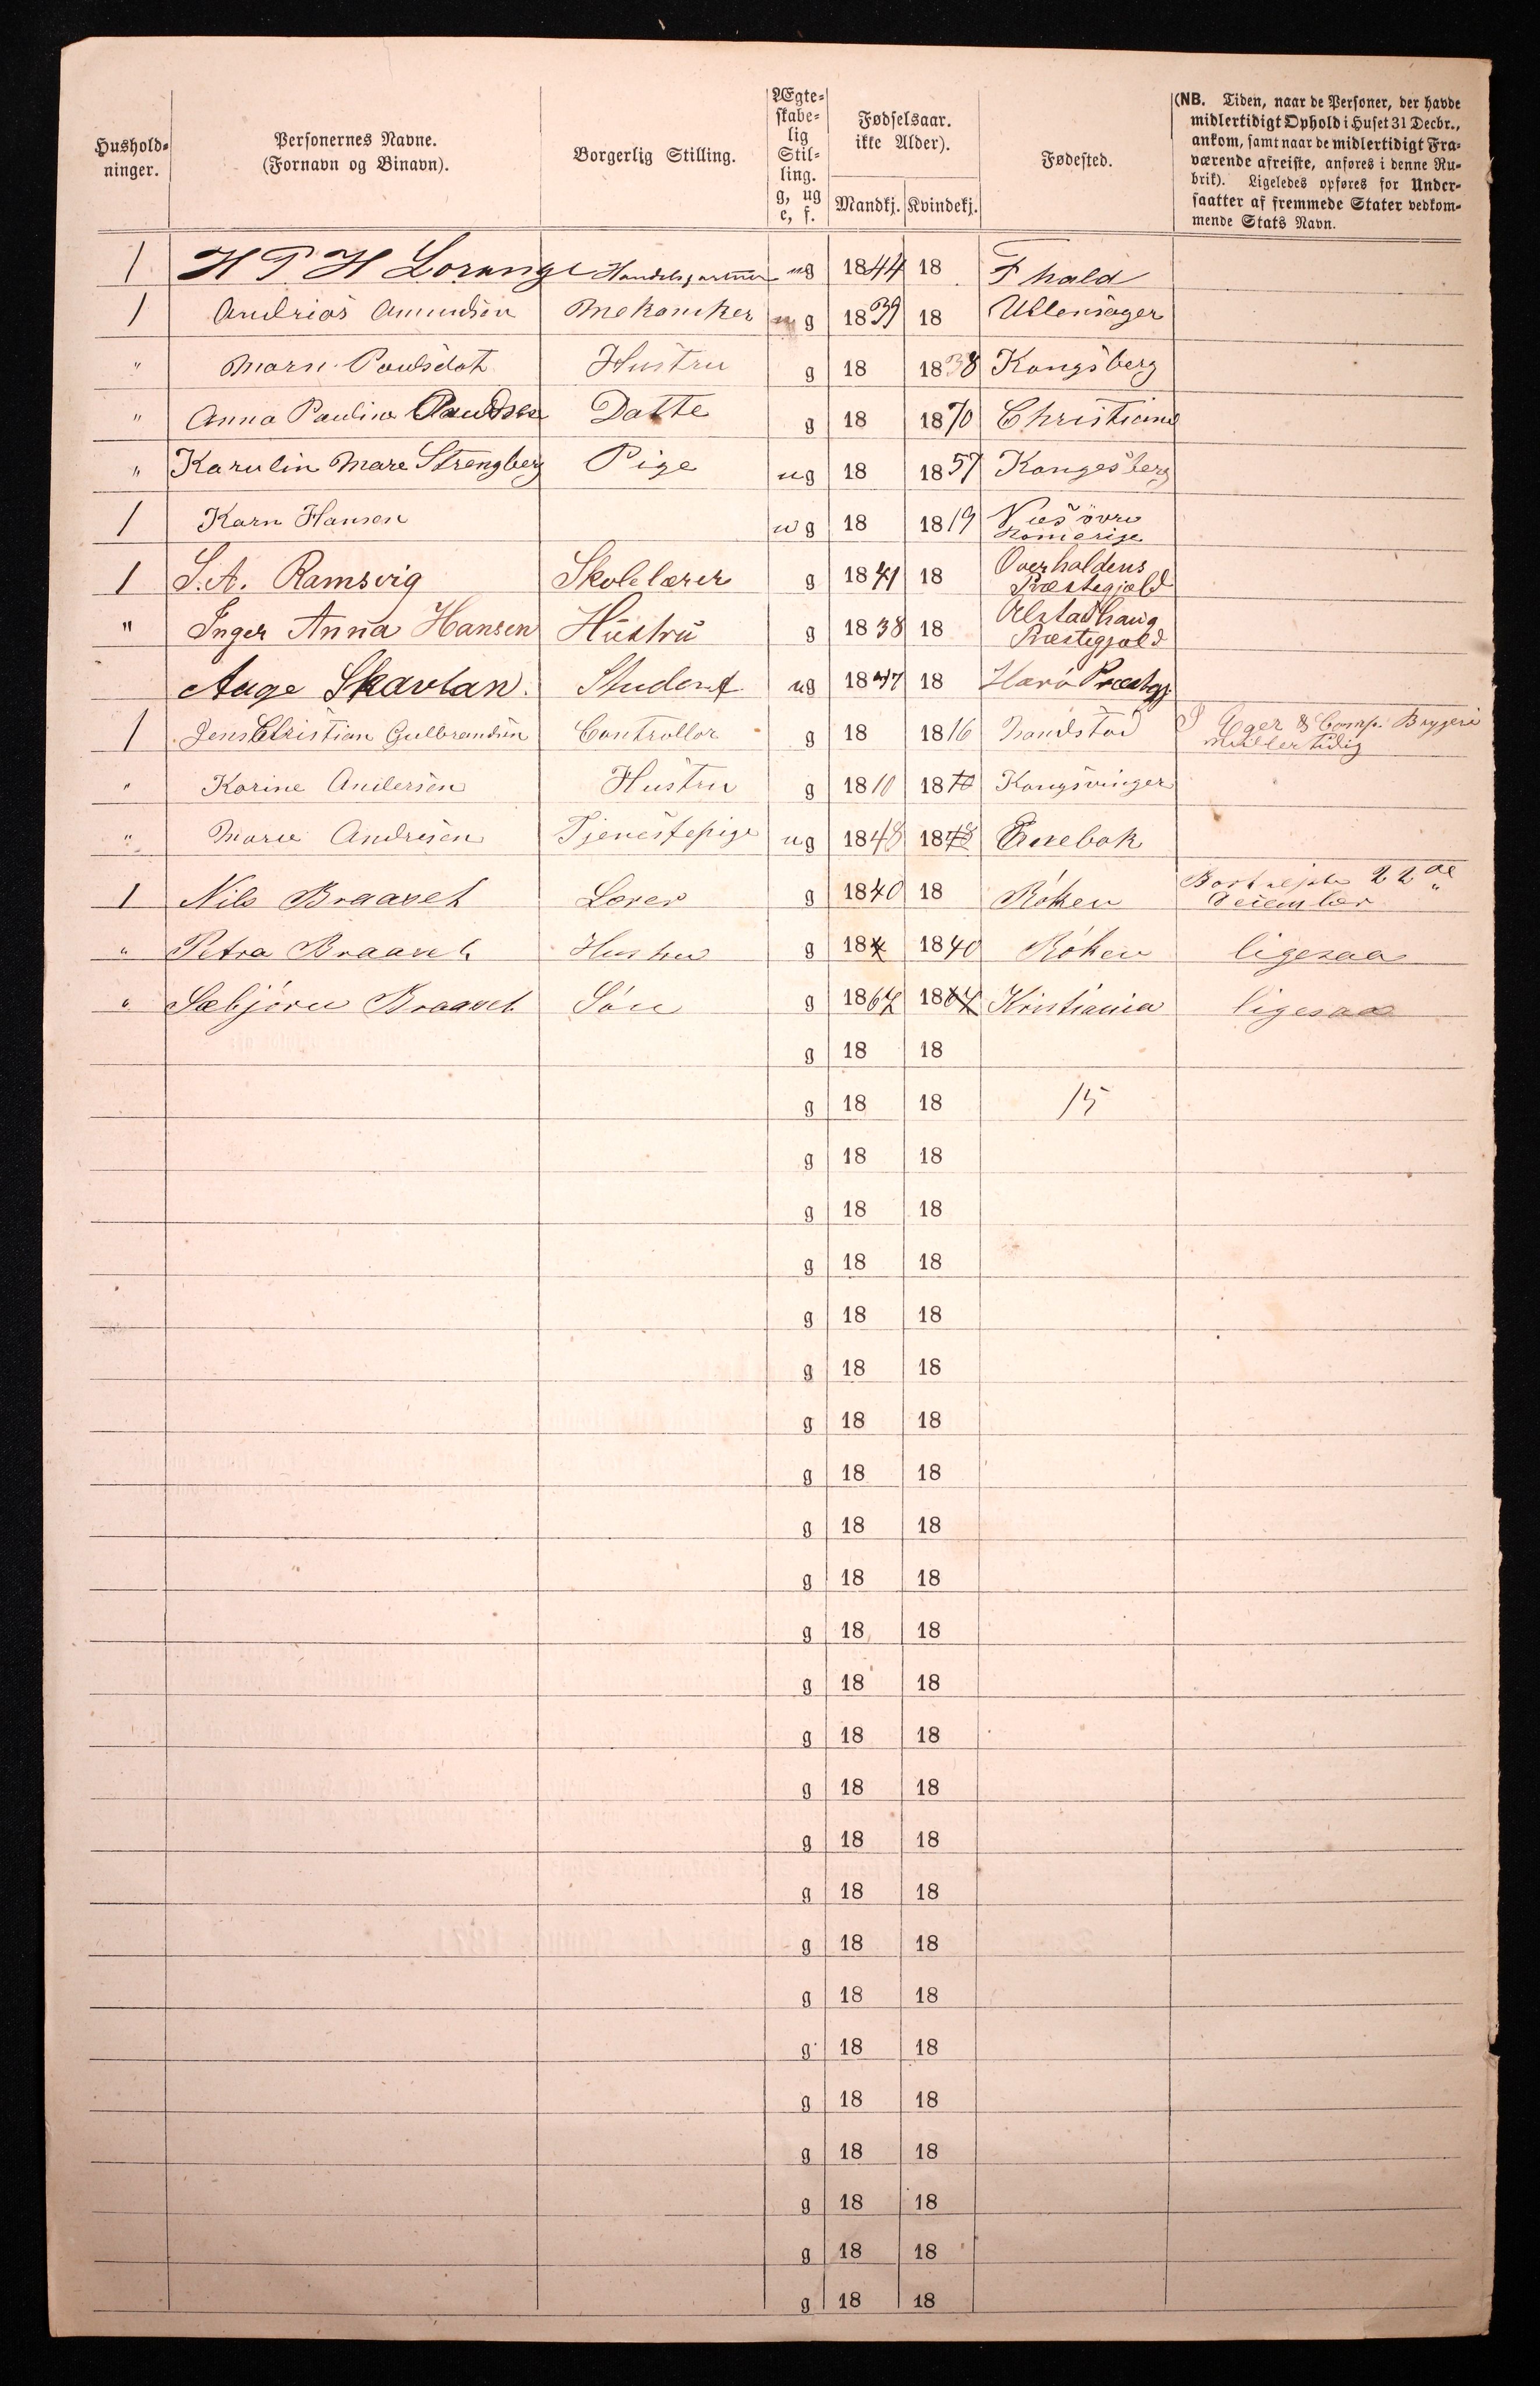 Hushold-
ninger.
Personernes Navne.
(Fornavn og Binavn).
Borgerlig Stilling.
Ægte-
skabe-
lig
Stil-
ling.
g, ug
e, f.
Fødselsaar.
ikke Alder).
Mandkj. Kvindekj.
Fødested.
(NB. Tiden, naar de Personer, der havde
midlertidigt Ophold i Huset 31 Decbr.,
ankom, samt naar de midlertidigt Fra-
værende afreiste, anføres i denne Ru-
brik). Ligeledes opføres for Under-
saatter af fremmede Stater vedkom-
mende Stats Navn.
1 H P H Lorange ug 1844 18 Fhald
1 Andrias Amundsen Mekaniker g 1839 18 Ullensager
" Marn Poulsdat Hustru g 18 1838 Kongsberg
" Anna Pauline Datte g 18 1870 Christiana
" Karulin Mare Strengberg Pige ug 18 1857 Kongesberg
1 Karn Hansen ug 18 1819 Næs övre
Romerige
1 S. A. Ramsvig Skolelærer g 1841 18 Overhaldens
Præstegjæld
" Inger Anna Hansen Hustru g 1838 18 Alstadhaug
Præstegjæld
Aage Skavlan. Student ug 1847 18 Harö Præstegj.
1 Jens Christian Gulbrandsen Controllør g 18 1816 Eger & Comp. Bryggeri
" Karine Andersen Hustru g 1810 18 Kongsvinger "
" Marie Andresen Tjenestepige ug 1848 1848 Enebak
1 Nils Braavet Lærer g 1840 18 Röken 22de
December
" Petra Braavet Hustru g 184 1840 Röken ligesaa
" Sæbjörn Braavet Sön g 1867 1867 Kristiania ligesaa
g 18 18
g 18 18 15
g 18 18
g 18 18
g 18 18
g 18 18
g 18 18
g 18 18
g 18 18
g 18 18
g 18 18
g 18 18
g 18 18
g 18 18
g 18 18
g 18 18
g 18 18
g 18 18
g 18 18
g 18 18
g 18 18
g 18 18
g 18 18
g 18 18
g 18 18